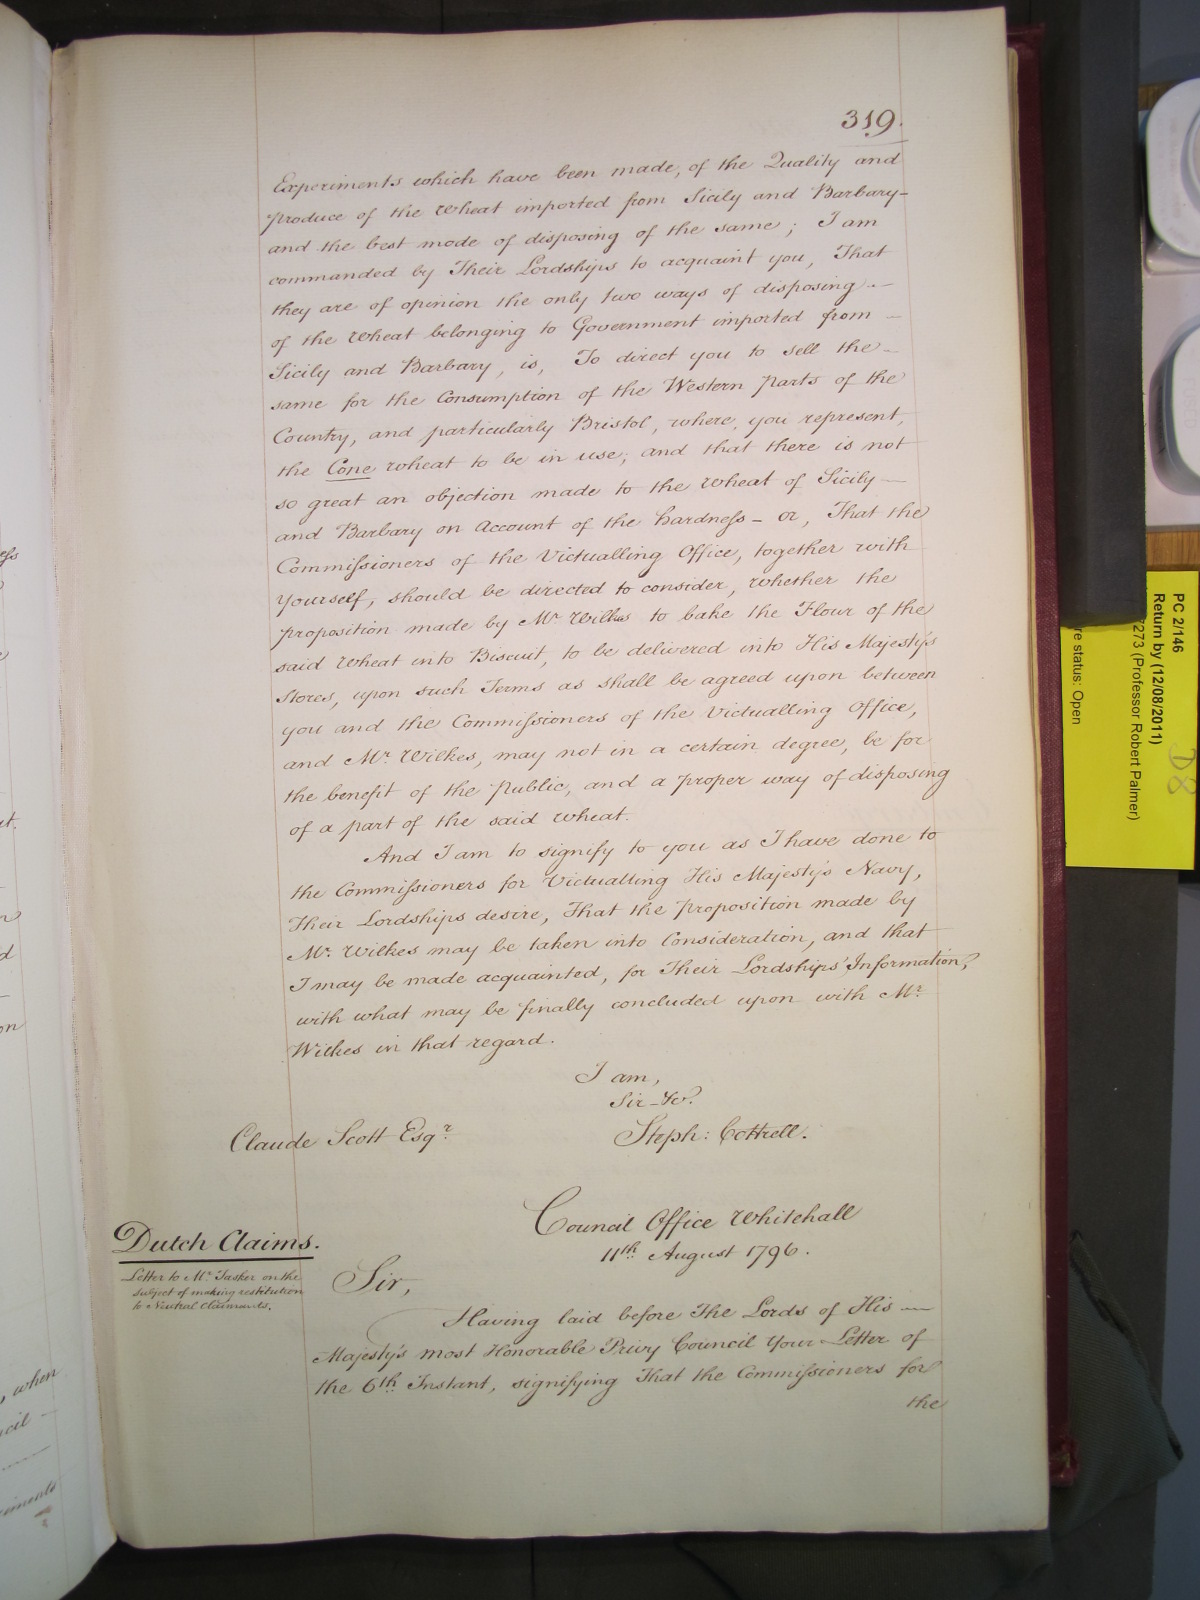 319.
Experiments which have been made, of the Quality and
produce of the Wheat imported from Sicily and Barbary—
and the best mode of disposing of the same; I am
commanded by Their Lordships to acquaint you, That
they are of opinion the only two ways of disposing —
of the Wheat belonging to Government imported from —
Sicily and Barbary, is, To direct you to sell the —
same for the Consumption of the Western parts of the
Country, and particularly Bristol, where, you represent,
the Cone wheat to be in use; and that there is not
so great an objection made to the Wheat of Sicily —
and Barbary on Account of the hardness — or, That the
Commissioners of the Victualling Office, together with
yourself, should be directed to consider, whether the
proposition made by Mr. Wilkes to bake the Flour of the
said Wheat into Biscuit, to be delivered into His Majestys
Stores, upon such Terms as shall be agreed upon between
you and the Commissioners of the Victualling Office,
and Mr. Wilkes, may not in a certain degree, be for
the benefit of the Public, and a proper way of disposing
of a part of the said wheat.
And I am to signify to you as I have done to
the Commissioners for Victualling His Majesty's Navy,
Their Lordships desire, That the proposition made by
Mr. Wilkes may be taken into Consideration, and that
I may be made acquainted, for Their Lordships' Information,
with what may be finally concluded upon with Mr.
Wilkes in that regard.
I am,
Sir &c.
Claude Scott Esqr. Steph: Cottrell.
Council Office Whitehall
11th. August 1796.
Dutch Claims.
Letter to Mr. Tasker on the
subject of making restitution
to Neutral Claimants.
Sir,
Having laid before The Lords of His —
Majesty's most Honorable Privy Council Your Letter of
the 6th. Instant, signifying That the Commissioners for
the
PC 2/146
Return by (12/08/2011)
7273 (Professor Robert Palmer)
re status: Open
D8
ess
, when